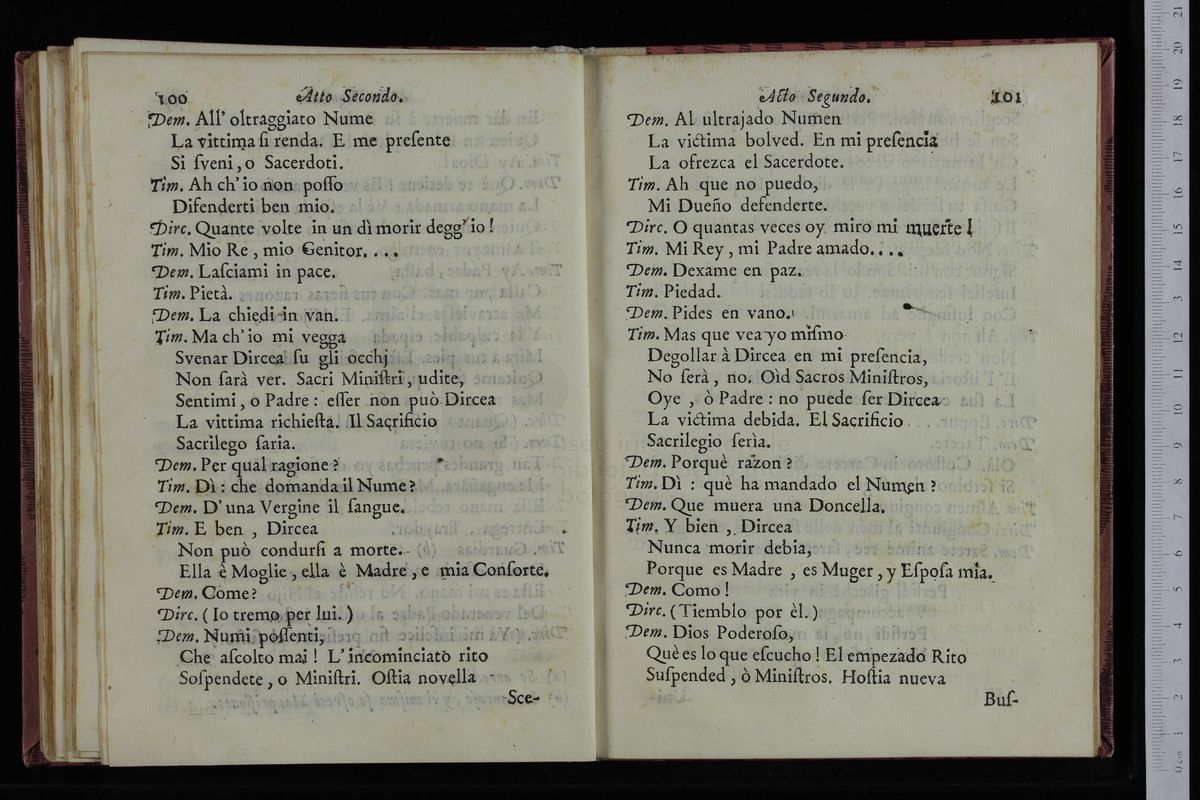 100 Atto Secondo.
Dem. All' oltraggiato Nume
La vittima ſi renda. E me preſente
Si ſveni, o Sacerdoti.
Tim. Ah ch' io non poſſo
Difenderti ben mio.
Dirc. Quante volte in un dì morir degg' io !
Tim. Mio Re , mio Genitor. . . .
Dem. Laſciami in pace.
Tim. Pietà.
Dem. La chiedi in van.
Tim. Ma ch' io mi vegga
Svenar Dircea ſu gli occhj
Non ſarà ver. Sacri Miniſtri, udite,
Sentimi , o Padre : eſſer non può Dircea
La vittima richieſta. Il Sacrificio
Sacrilego ſaria.
Dem. Per qual ragione ?
Tim. Dì : che domanda il Nume ?
Dem. D' una Vergine il ſangue.
Tim. E ben , Dircea
Non può condurſi a morte.
Ella è Moglie , ella è Madre , e mia Conſorte.
Dem. Come ?
Dirc. ( Io tremo per lui. )
Dem. Numi poſſenti,
Che aſcolto mai ! L' incominciato rito
Soſpendete , o Miniſtri. Oſtia novella
Sce-
Acto Segundo. 101
Dem. Al ultrajado Numen
La victima bolved. En mi preſencia
La ofrezca el Sacerdote.
Tim. Ah que no puedo,
Mi Dueño defenderte.
Dirc. O quantas veces oy miro mi muerte !
Tim. Mi Rey , mi Padre amado. . . .
Dem. Dexame en paz.
Tim. Piedad.
Dem. Pides en vano.
Tim. Mas que vea yo miſmo
Degollar à Dircea en mi preſencia,
No ſerà , no. Oìd Sacros Miniſtros,
Oye , ò Padre : no puede ſer Dircea
La victima debida. El Sacrificio
Sacrilegio ſerìa.
Dem. Porquè razon ?
Tim. Dì : què ha mandado el Numen ?
Dem. Que muera una Doncella.
Tim. Y bien , Dircea
Nunca morir debia,
Porque es Madre , es Muger , y Eſpoſa mia.
Dem. Como !
Dirc. ( Tiemblo por èl. )
Dem. Dios Poderoſo,
Què es lo que eſcucho ! El empezado Rito
Suſpended , ò Miniſtros. Hoſtia nueva
Buſ-